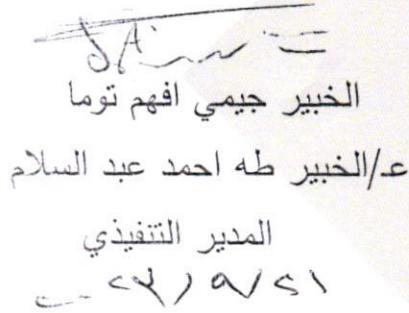 الخبير جيمي افهم توما
عـ/الخبير طه احمد عبد السلام
المدير التنفيذي
٢٠٢٣/٩/٢١